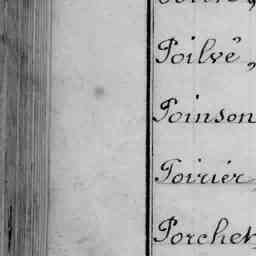 Poilvé,
Poinson
Poirier
Porcher